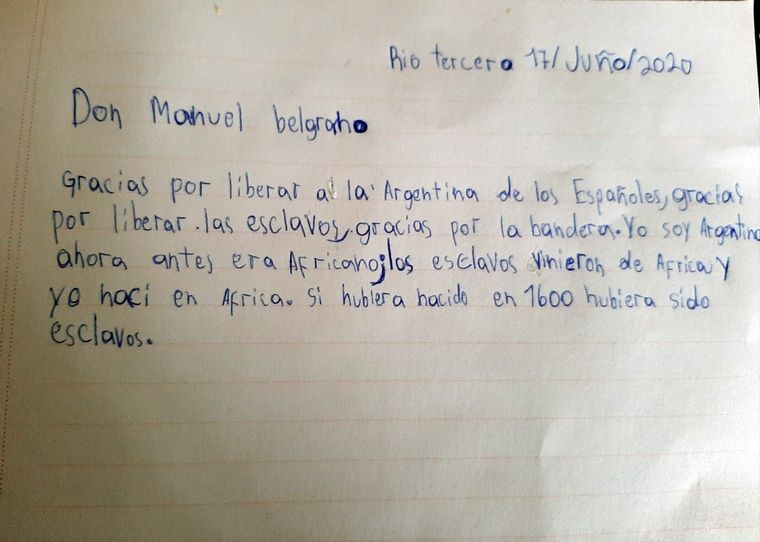 Rio tercero 17/Juño/2020
Don Manuel belgrano
Gracias por liberar a la Argentina de los Españoles, gracias
por liberar las esclavos, gracias por la bandera. Yo soy Argentino
ahora antes era Africano; los esclavos vinieron de Africa y
yo naci en Africa. Si hubiera nacido en 1600 hubiera sido
esclavos.